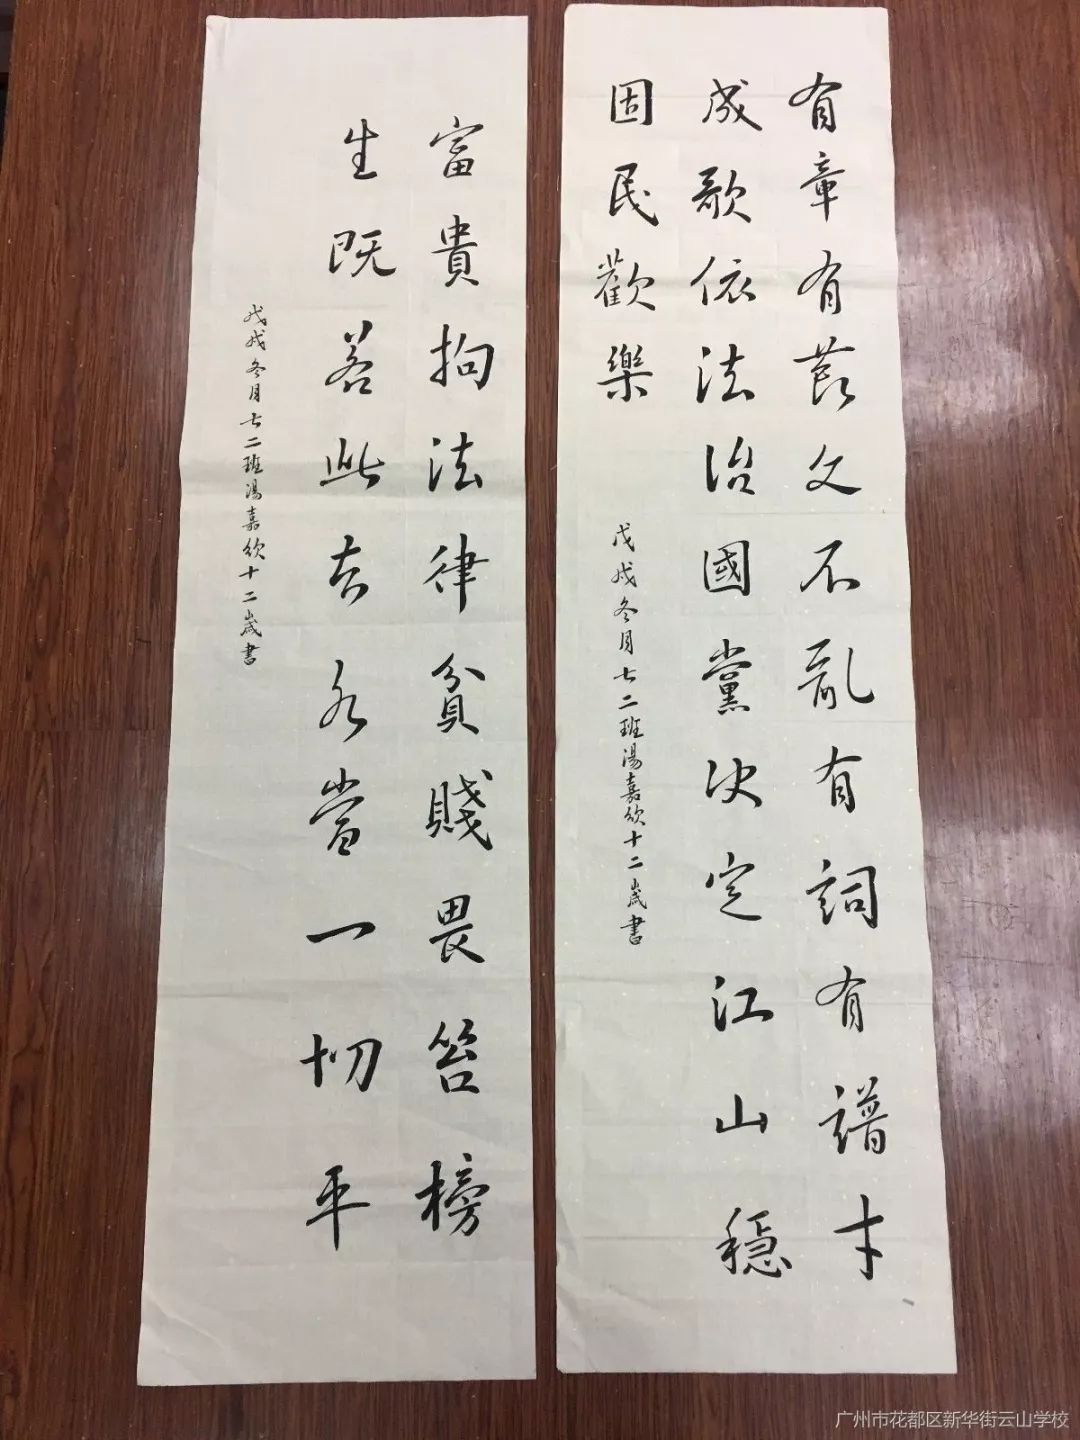 有章有節文不亂有詞有譜才
成歌依法治國黨決定江山穩
固民歡樂
戊戌冬月七二班湯嘉欣十二歲書
富貴拘法律貧賤畏笞榜
生既若此去死當一切平
戊戌冬月七二班湯嘉欣十二歲書
广州市花都区新华街云山学校